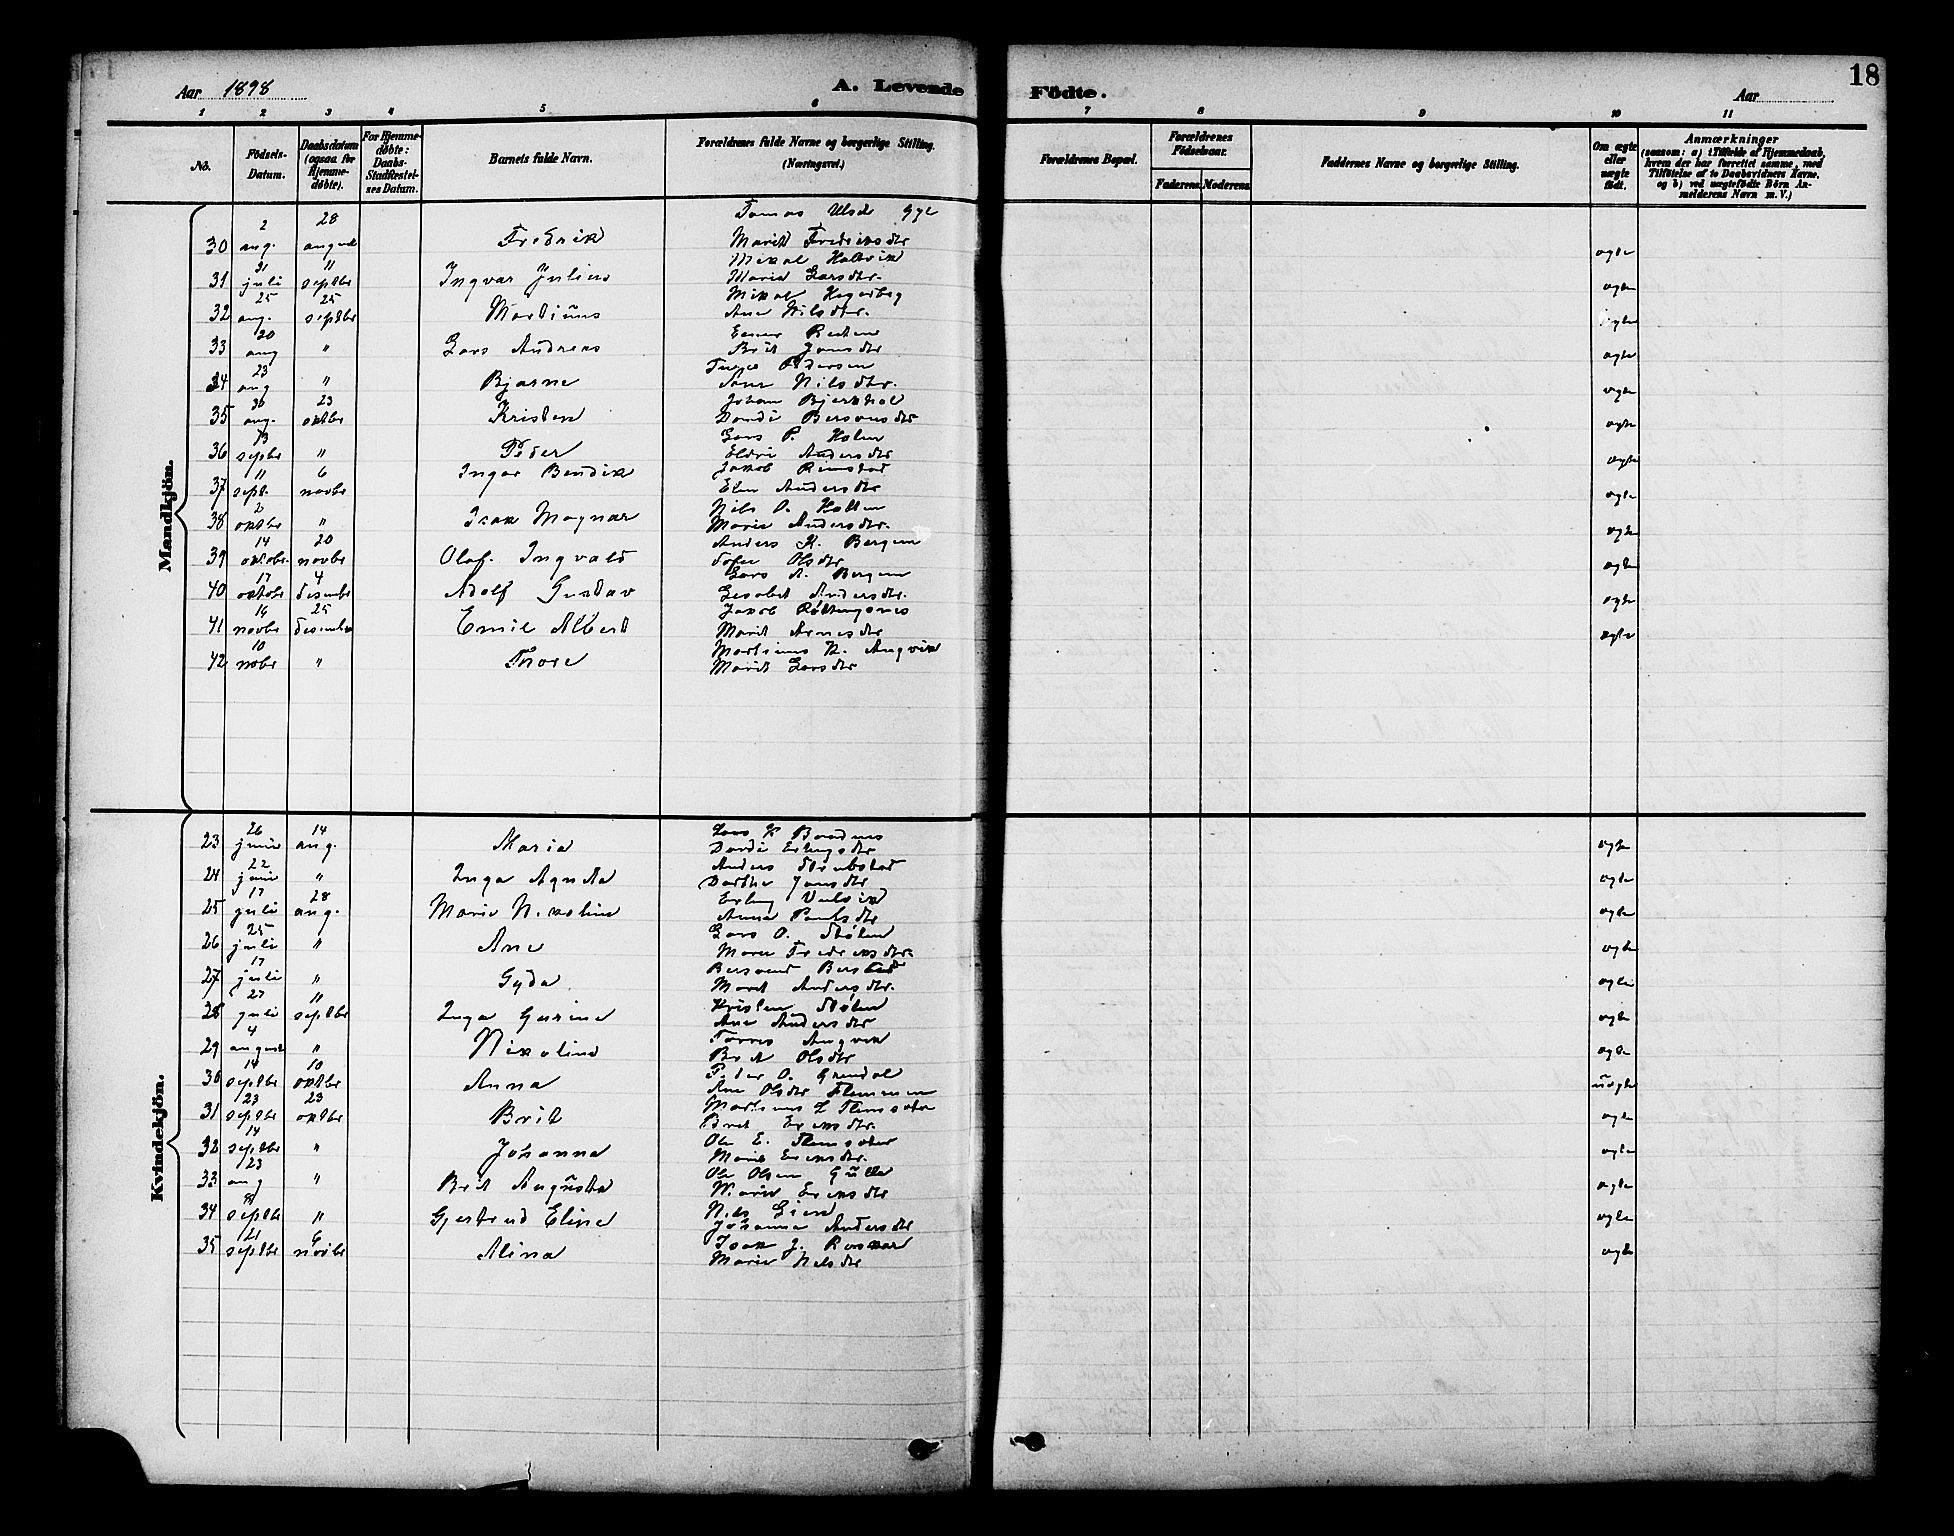 18
Aar 1898
A. Levende Födte.
Aar
1 2 3 4 5 6 7 8 9 10 11
No.
Födsels-Datum.
Daabsdatum (ogsaa for Hjemmedöbte).
For Hjemmedöbte: Daabs-Stadfæstelses Datum.
Barnets fulde Navn.
Forældrenes fulde Navne og borgerlige Stilling. (Næringsvei.)
Forældrenes Bopæl.
Forældrenes Födselsaar.
Faderens. Moderens.
Faddernes Navne og borgerlige Stilling.
Om ægte eller uægte født.
Anmærkninger
(saasom: a) i Tilfælde af Hjemmedaab, hvem der har forrettet samme, med Tilföielse af to Daabsvidners Navne, og b) ved uægtefödte Börn Anmelderens Navn m. V.)
Mandkjön.
30 2 aug. 28 august Fredrik Tomas Gye
Marit Frederiksdtr ægte
31 31 juli 11 septbr Ingvar Julius Mikal
Marie Larsdtr. ægte
32 25 aug. 25 septbr Martinus Mikal Hegerberg
Ane Nilsdtr. ægte
33 20 aug " Lars Andreas
Brit Jonsdtr ægte
34 23 aug " Bjarne Pedersen
Ane Nilsdtr. ægte
35 30 aug. 23 oktbr Kristen Johan Bjerkhol
Dordi Bersvensdtr ægte
36 13 septbr " Peder Lars P. Holen
Eldri Andersdtr ægte
37 11 sept. 6 novbr Ingar Bendik Jakob Rimstad
Elen Andersdtr ægte
38 2 oktbr " Isak Magnar Nils O. Holten
Marie Andersdtr. ægte
39 14 oktobr. 20 novbr Olaf. Ingvald Anders K. Bergem
Olsdtr ægte
40 17 oktobr 4 desembr Adolf Gustav Lars A. Bergem
Lisabet Andersdtr. ægte
41 16 novbr 25 desembr Emil Albert Jakob Röttingsnes
Marit Arnesdtr ægte
42 10 nobr " Thore Martinus N. Angvik
Marit Larsdtr
Kvindekjön.
23 26 juni 14 aug. Maria Lars K Boadnes
Dordi Erlingsdtr ægte
24 22 juni " Inga Agnda Anders Strubstad
Dorthe Jonsdtr ægte
25 17 juli 28 aug. Marie Nikoline Erling Vulvik
Anna Paulsdtr ægte
26 25 juli " Ane Lars O. Stölen
Frederiksdtr. ægte
27 17 juli " Gyda Bersvend
Marit Andersdtr. ægte
28 27 juli 11 septbr Inga Gurine Kristen Stölen
Ane Andersdtr ægte
29 4 august " Nikoline Torris Angvik
Brit Olsdtr ægte
30 14 septbr 10 oktbr Anna Peder O. Grendal
Ane Olsdtr Flemmen uægte
31 23 septbr 23 oktbr Brit Martinus L Flemsæter
Brit Eriksdtr. ægte
32 14 septbr " Johanna Ole E. Flemsæter
Marit Eriksdtr. ægte
33 23 aug " Brit Augusta Ole Olsen Gulla
Marit Eriksdtr ægte
34 septbr " Gjertrud Eline Nils Gien
Johanna Andersdtr ægte
35 21 septbr 6 novbr Alina Isak J. Roskar
Marie Nilsdtr ægte